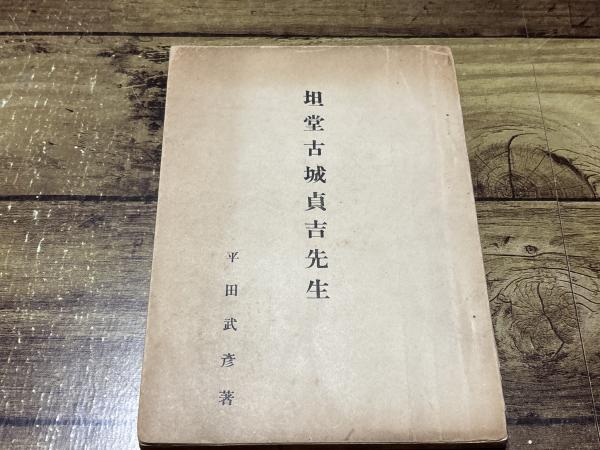 坦堂古城貞吉先生
平田武彦著